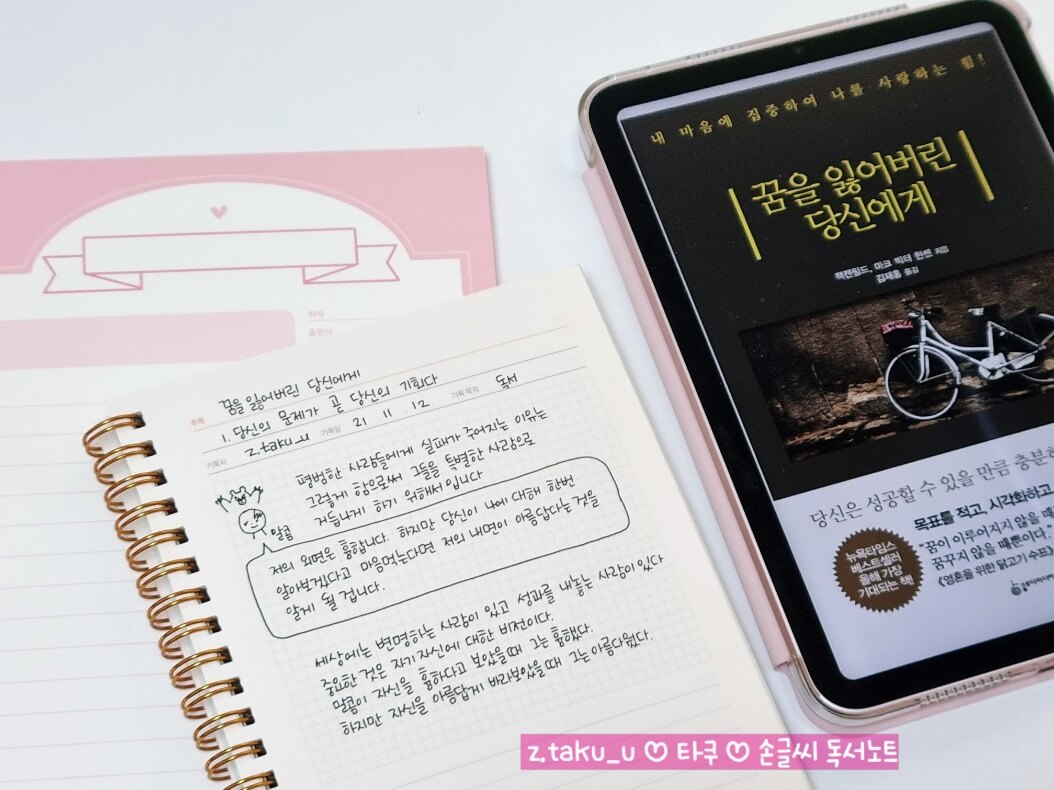 내 마음에 집중하여 나를 사랑하는 힘!
꿈을 잃어버린
당신에게
잭캔필드, 마크 빅터 한센 지음
김재홍 옮김
당신은 성공할 수 있을 만큼 충분히
목표를 적고, 시각화하고
"꿈이 이루어지지 않을 때
꿈꾸지 않을 때뿐이다."
《영혼을 위한 닭고기 수프
뉴욕타임스
베스트셀러
올해 가장
기대되는 책!
제목
출판사
주제 꿈을 잃어버린 당신에게
1. 당신의 문제가 곧 당신의 기회다
기록자 z.taku_u 기록일 21. 11. 12 기록 목적 독서
평범한 사람들에게 실패가 주어지는 이유는
그렇게 함으로써 그들을 특별한 사람으로
거듭나게 하기 위해서 입니다
말콤
저의 외면은 흉합니다. 하지만 당신이 나에 대해 한번
알아보겠다고 마음먹는다면 저의 내면이 아름답다는 것을
알게 될 겁니다.
세상에는 변명하는 사람이 있고 성과를 내놓는 사람이 있다
중요한 것은 자기 자신에 대한 비전이다.
말콤이 자신을 흉하다고 보았을때 그는 흉했다.
하지만 자신을 아름답게 바라보았을때 그는 아름다웠다.
z.taku_u ♡ 타쿠 ♡ 손글씨 독서노트